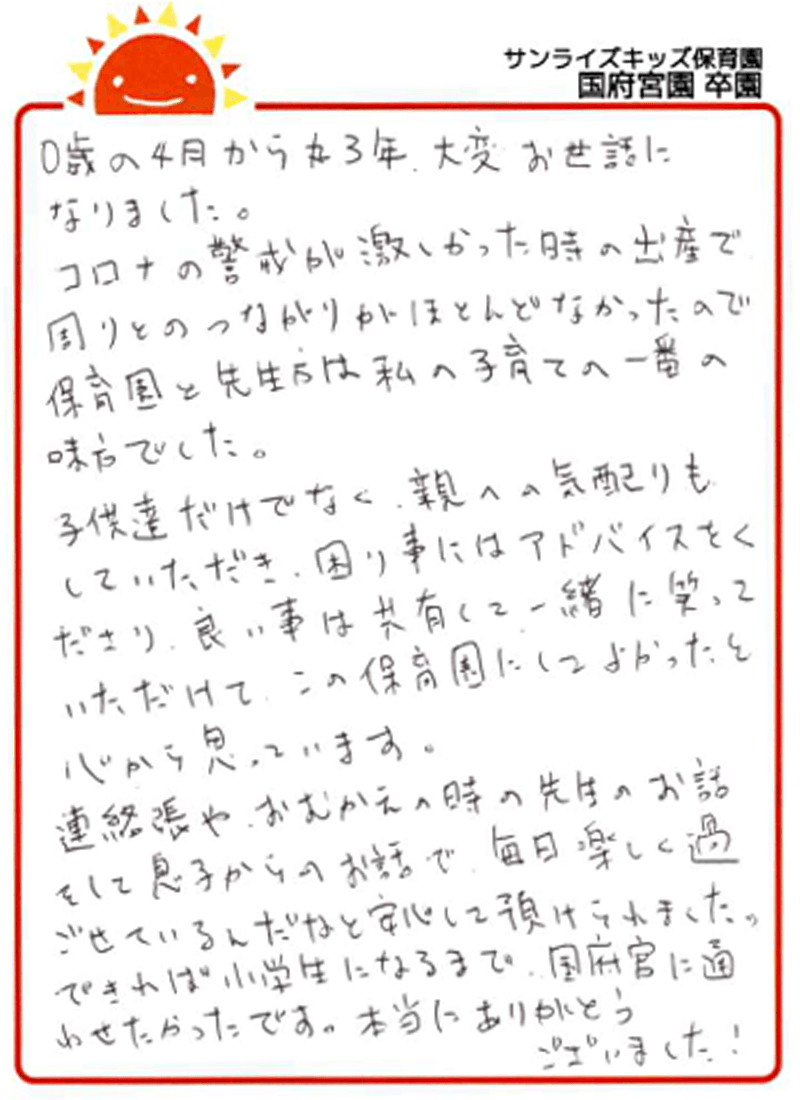 サンライズキッズ保育園
国府宮園 卒園
0歳の4月から丸3年、大変 お世話に
なりました。
コロナの警戒が激しかった時の出産で
周りとのつながりがほとんどなかったので
保育園と先生方は私の子育ての一番の
味方でした。
子供達だけでなく、親への気配りも
していただき、困り事にはアドバイスをく
ださり、良い事は共有して一緒に笑って
いただけて、この保育園にしてよかったと
心から思っています。
連絡張や、おむかえの時の先生のお話
そして息子からのお話で、毎日楽しく過
ごせているんだなと安心して預けられました。
できれば小学生になるまで、国府宮に通
わせたかったです。本当にありがとう
ございました!